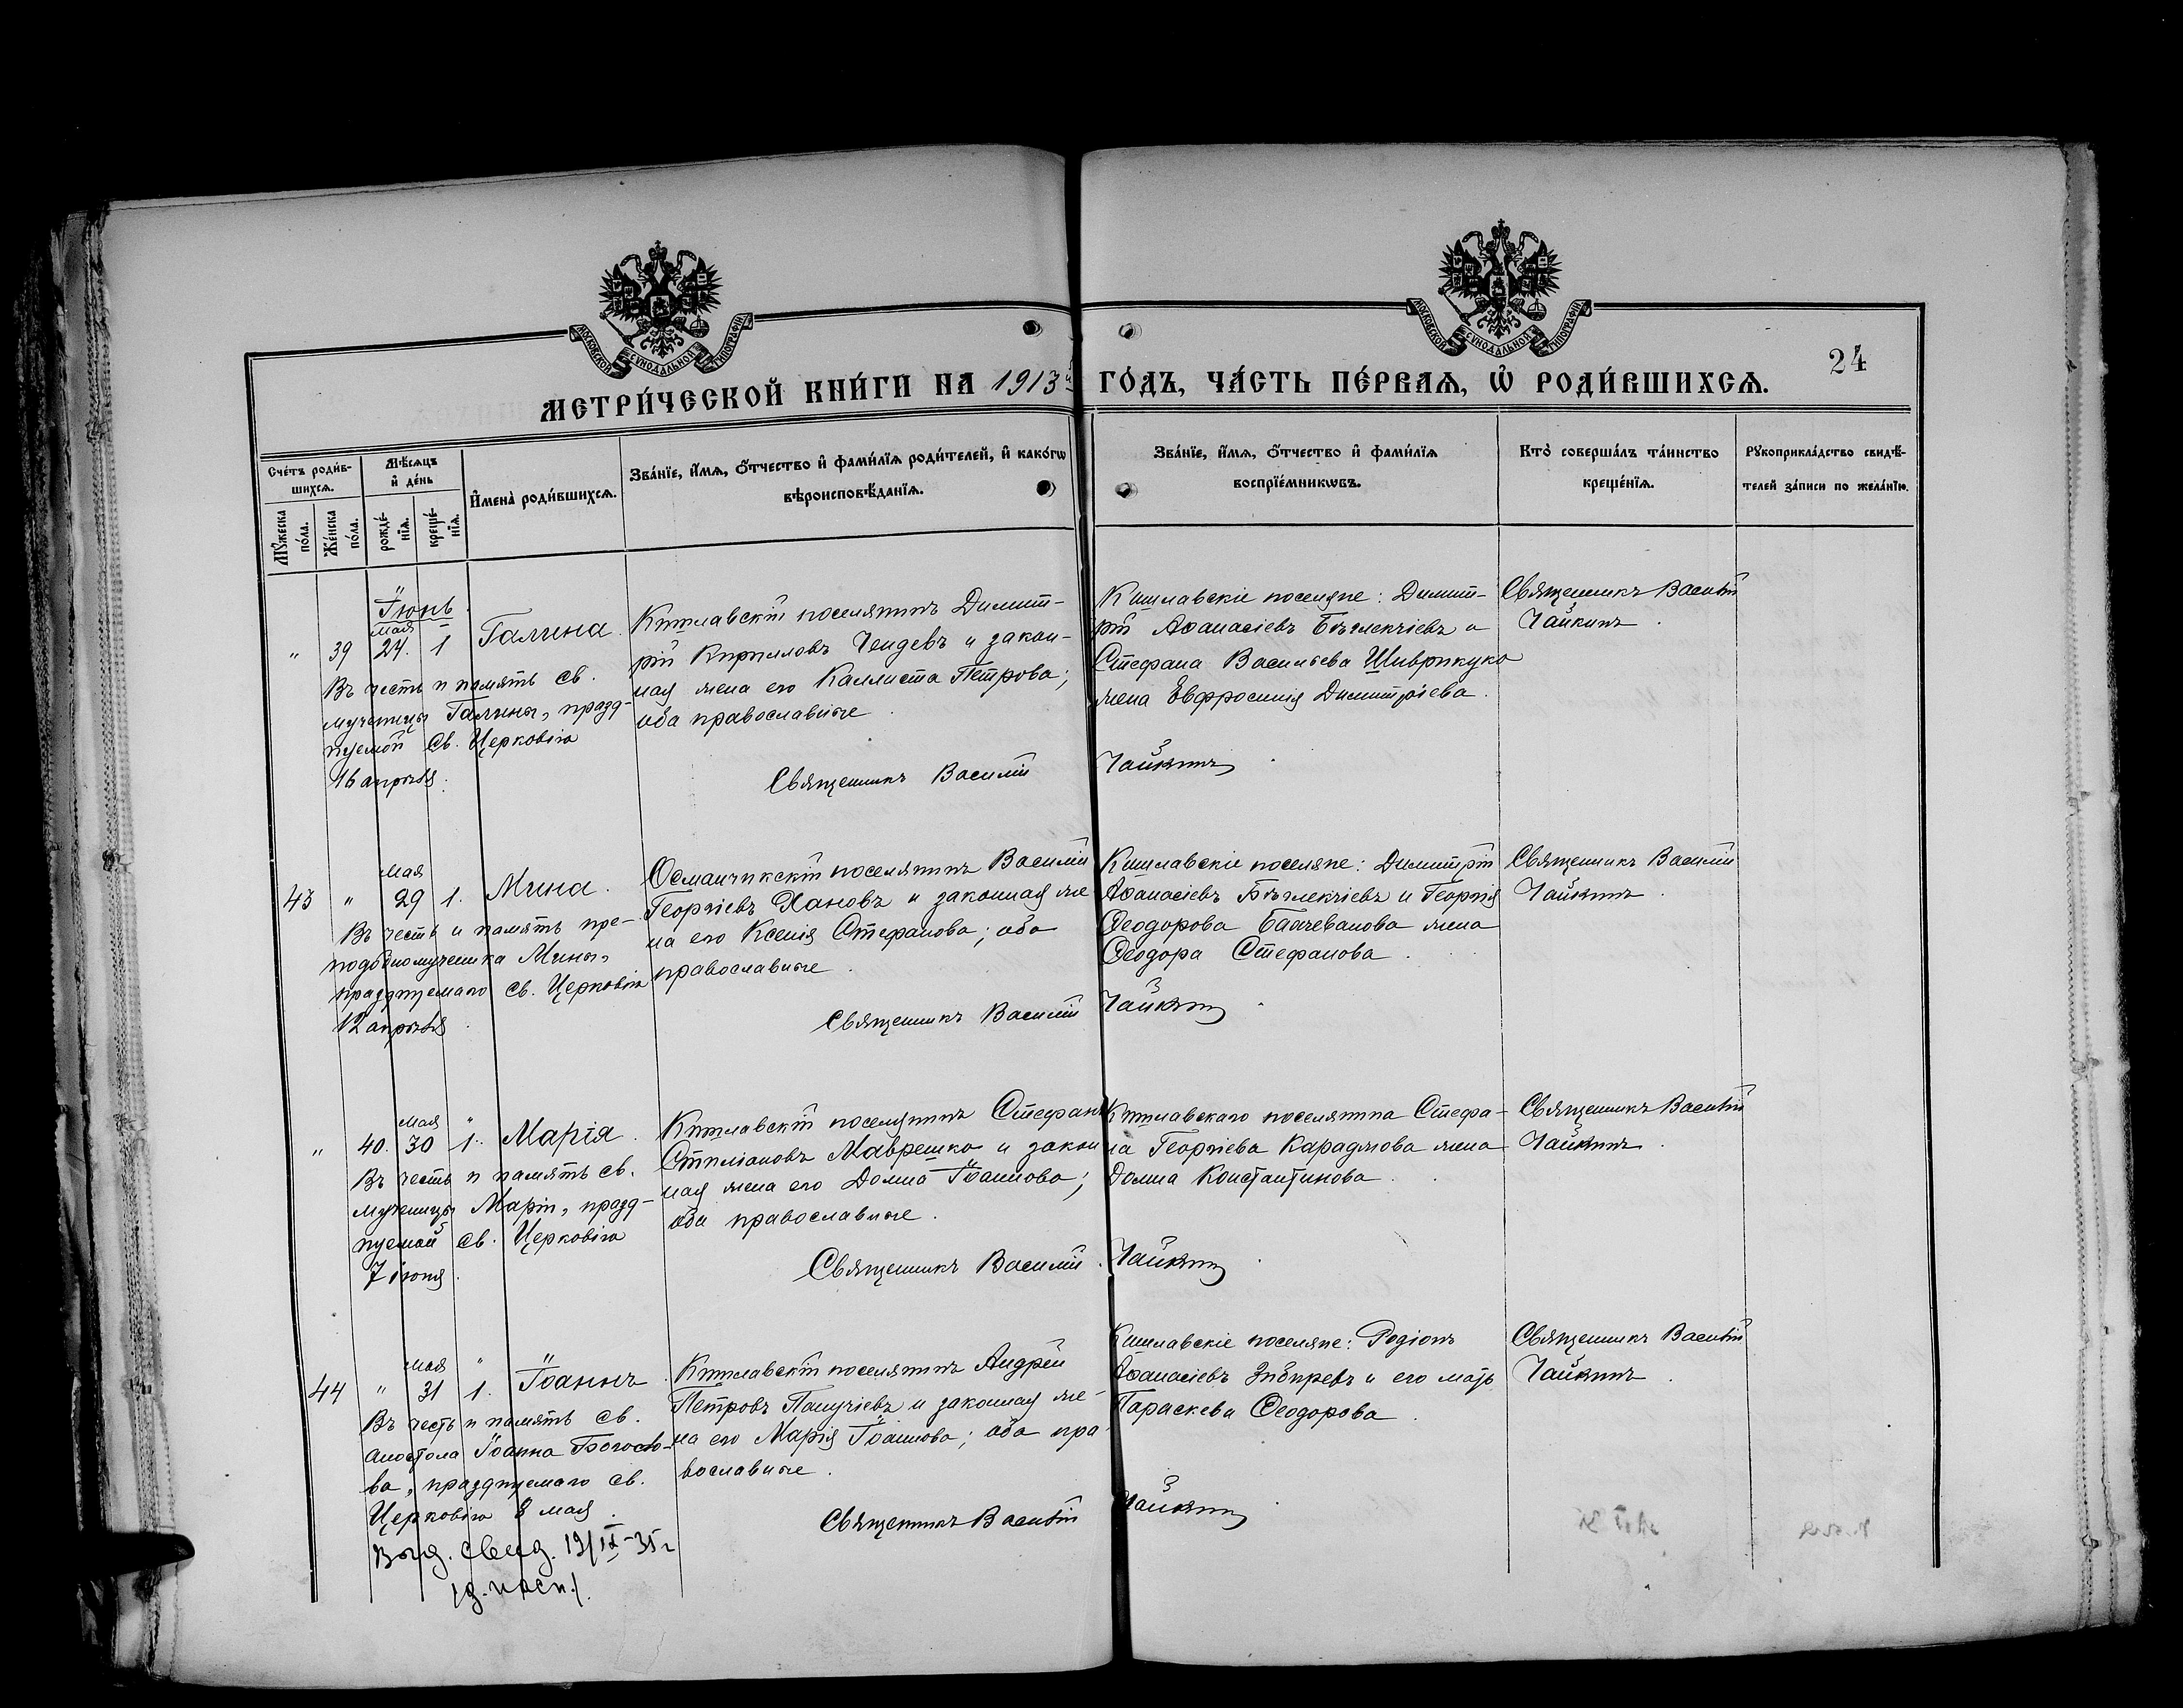 МОСКОВСКОЙ СѴНОДАЛЬНОЙ ТИПОГРАФІИ
МОСКОВСКОЙ СѴНОДАЛЬНОЙ ТИПОГРАФІИ
24
МЕТРИ́ЧЕСКОЙ КНИ́ГИ НА 1913й ГО́ДЪ, ЧА́СТЬ ПЕ́РВАѦ, Ѡ҆ РОДИ́ВШИХСѦ.
Сче́тъ роди́в-
шихсѧ.
Мꙋ́жеска по́ла.
Же́нска по́ла.
Мѣ́сѧцъ
и҆ де́нь
рожде́-
нїѧ.
креще́-
нїѧ.
И҆мена̀ роди́вшихсѧ.
Зва́нїе, и҆́мѧ, ѻ҆́тчество и҆ фами́лїѧ роди́телей, и҆ како́гѡ
вѣроисповѣ́данїѧ.
Зва́нїе, и҆́мѧ, ѻ҆́тчество и҆ фами́лїѧ
воспрїе́мникѡвъ.
Кто̀ соверша́лъ та́инство
креще́нїѧ.
Рꙋкоприкла́дство свидѣ́-
телей за́писи по жела́нїю.
Іюнь
мая
" 39 24. 1 Галина.
Въ честь и память св.
мученицы Галины, празд-
нуемой св. Церковію
16 апрѣля.
Кишлавскій поселянинъ Димит-
рій Кирилловъ Чендевъ и закон-
ная жена его Каллиста Петрова;
оба православные.
Священникъ Василій Чайкинъ
Кишлавскіе поселяне: Димит-
рій Аѳанасіевъ Бѣглекчіевъ и
Стефана Васильева Шиврикуко
жена Евфросинія Димитріева.
Священникъ Василій
Чайкинъ.
мая
43 " 29 1. Мина.
Въ честь и память пре-
подобномученика Мины,
празднуемаго св. Церковію
12 апрѣля
Османчикскій поселянинъ Василій
Георгіевъ Хановъ и законная же-
на его Ксенія Стефанова; оба
православные.
Священникъ Василій Чайкинъ
Кишлавскіе поселяне: Димитрій
Аѳанасіевъ Бѣглекчіевъ и Георгія
Ѳеодорова Бахчеванова жена
Ѳеодора Стефанова.
Священникъ Василій
Чайкинъ.
мая "
" 40. 30 1. Марія.
Въ честь и память св.
мученицы Маріи, празд-
нуемой св. Церковію
7 іюня.
Кишлавскій поселянинъ Стефанъ
Стиліановъ Маврешко и закон-
ная жена его Домна Іоаннова;
оба православные.
Священникъ Василій Чайкинъ
Кишлавскаго поселянина Стефа-
на Георгіева Караджова жена
Домна Константинова.
Священникъ Василій
Чайкинъ.
мая "
44 " 31 1. Іоаннъ.
Въ честь и память св.
апостола Іоанна Богосло-
ва, празднуемаго св.
Церковію 8 мая.
Выд. свид. 19/IX-35 г
Кишлавскій поселянинъ Андрей
Петровъ Панучіевъ и законная же-
на его Марія Іоаннова; оба пра-
вославные.
Священникъ Василій Чайкинъ
Кишлавскіе поселяне: Родіонъ
Аѳанасіевъ Знбиревъ и его мать
Параскева Ѳеодорова.
Священникъ Василій
Чайкинъ.